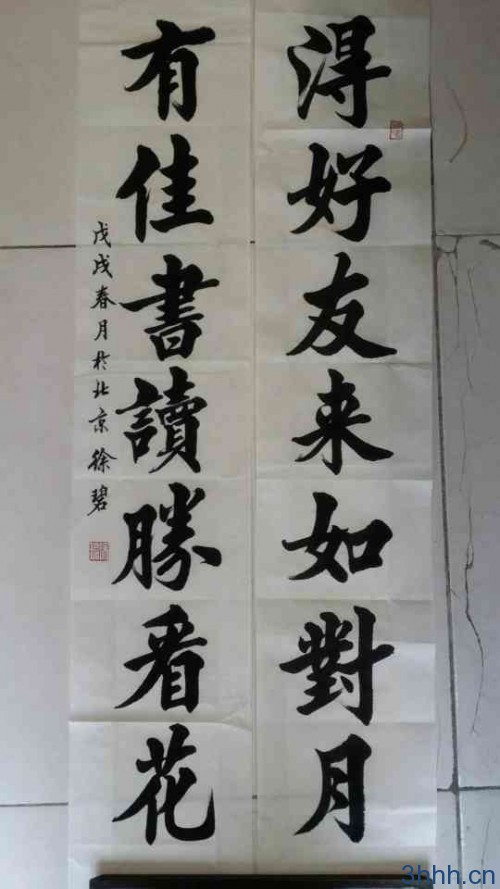 得好友来如對月
有佳書讀勝看花
戊戌春月於北京徐碧
3hhh.cn